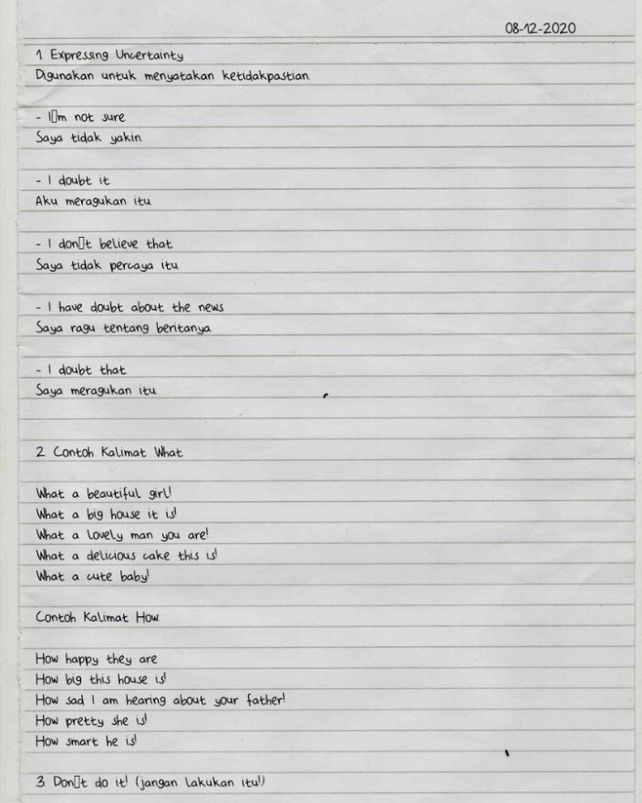 08-12-2020
1 Expressing Uncertainty
Digunakan untuk menyatakan ketidakpastian
- I▯m not sure
Saya tidak yakin
- I doubt it
Aku meragukan itu
- I don▯t believe that
Saya tidak percaya itu
- I have doubt about the news
Saya ragu tentang beritanya
- I doubt that
Saya meragukan itu
2 Contoh Kalimat What
What a beautiful girl!
What a big house it is!
What a lovely man you are!
What a delicious cake this is!
What a cute baby!
Contoh Kalimat How
How happy they are
How big this house is!
How sad I am hearing about your father!
How pretty she is!
How smart he is!
3 Don▯t do it! (jangan lakukan itu!)